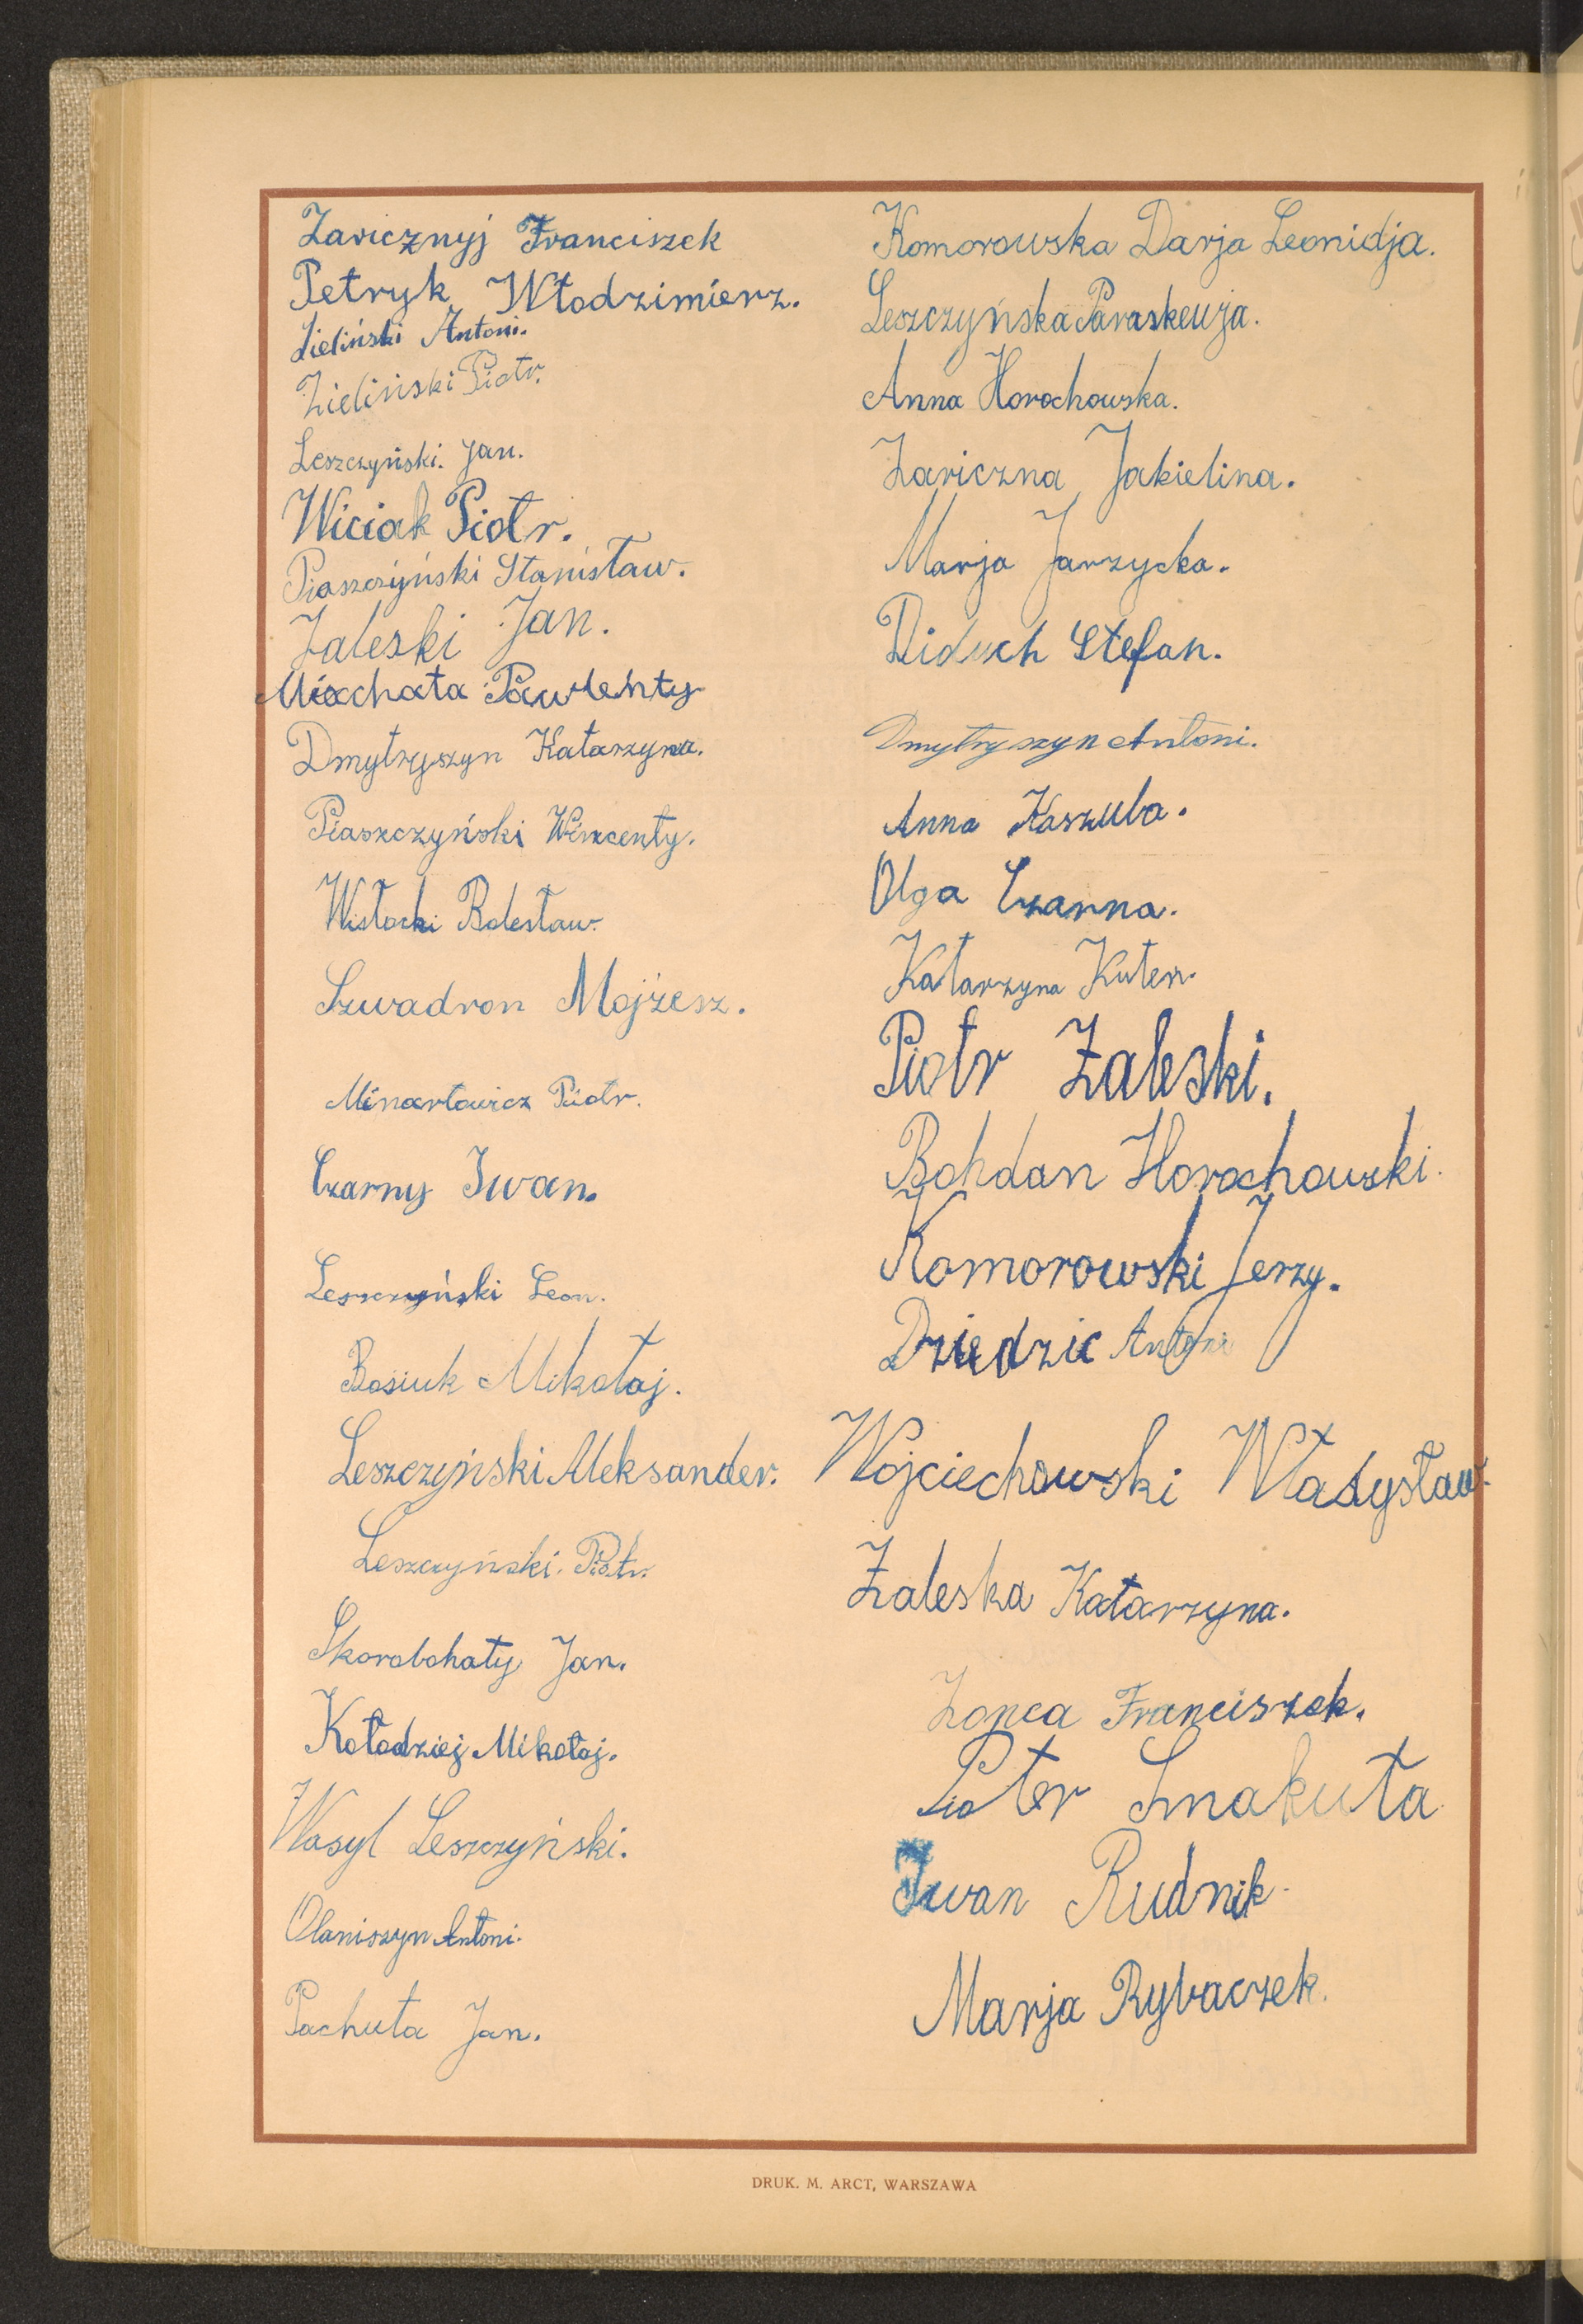 Zaricznyj Franciszek
Petryk Włodzimierz.
Zieliński Antoni.
Zieliński Piotr.
Leszczyński. Jan.
Wiciak Piotr.
Piaszczyński Stanisław.
Zaleski Jan.
Miachata Pawlenty
Dmytryszyn Katarzyna.
Piaszczyński Wincenty.
Wisłocki Bolesław.
Szwadron Mojżesz.
Minartowicz Piotr.
Czarny Iwan.
Leszczyński Leon.
Bosiuk Mikołaj.
Leszczyński Aleksander.
Leszczyński. Piotr.
Skorobohaty Jan.
Kołodziej Mikołaj.
Wasyl Leszczyński.
Olaniszyn Antoni.
Pachuta Jan.
Komorowska Darja Leonidja.
Leszczyńska Paraskewja.
Anna Horochowska.
Zariczna Jakielina.
Marja Jarzycka.
Diduch Stefan.
Dmytryszyn Antoni.
Anna Kaszuba.
Olga Czarna.
Katarzyna Kuten.
Piotr Zaleski.
Bohdan Horochowski.
Komorowski Jerzy.
Dziedzic Antoni
Wojciechowski Władysław.
Zaleska Katarzyna.
Zonca Franciszek.
Pioter Smakuła
Iwan Rudnik.
Marja Rybaczek.
DRUK. M. ARCT, WARSZAWA